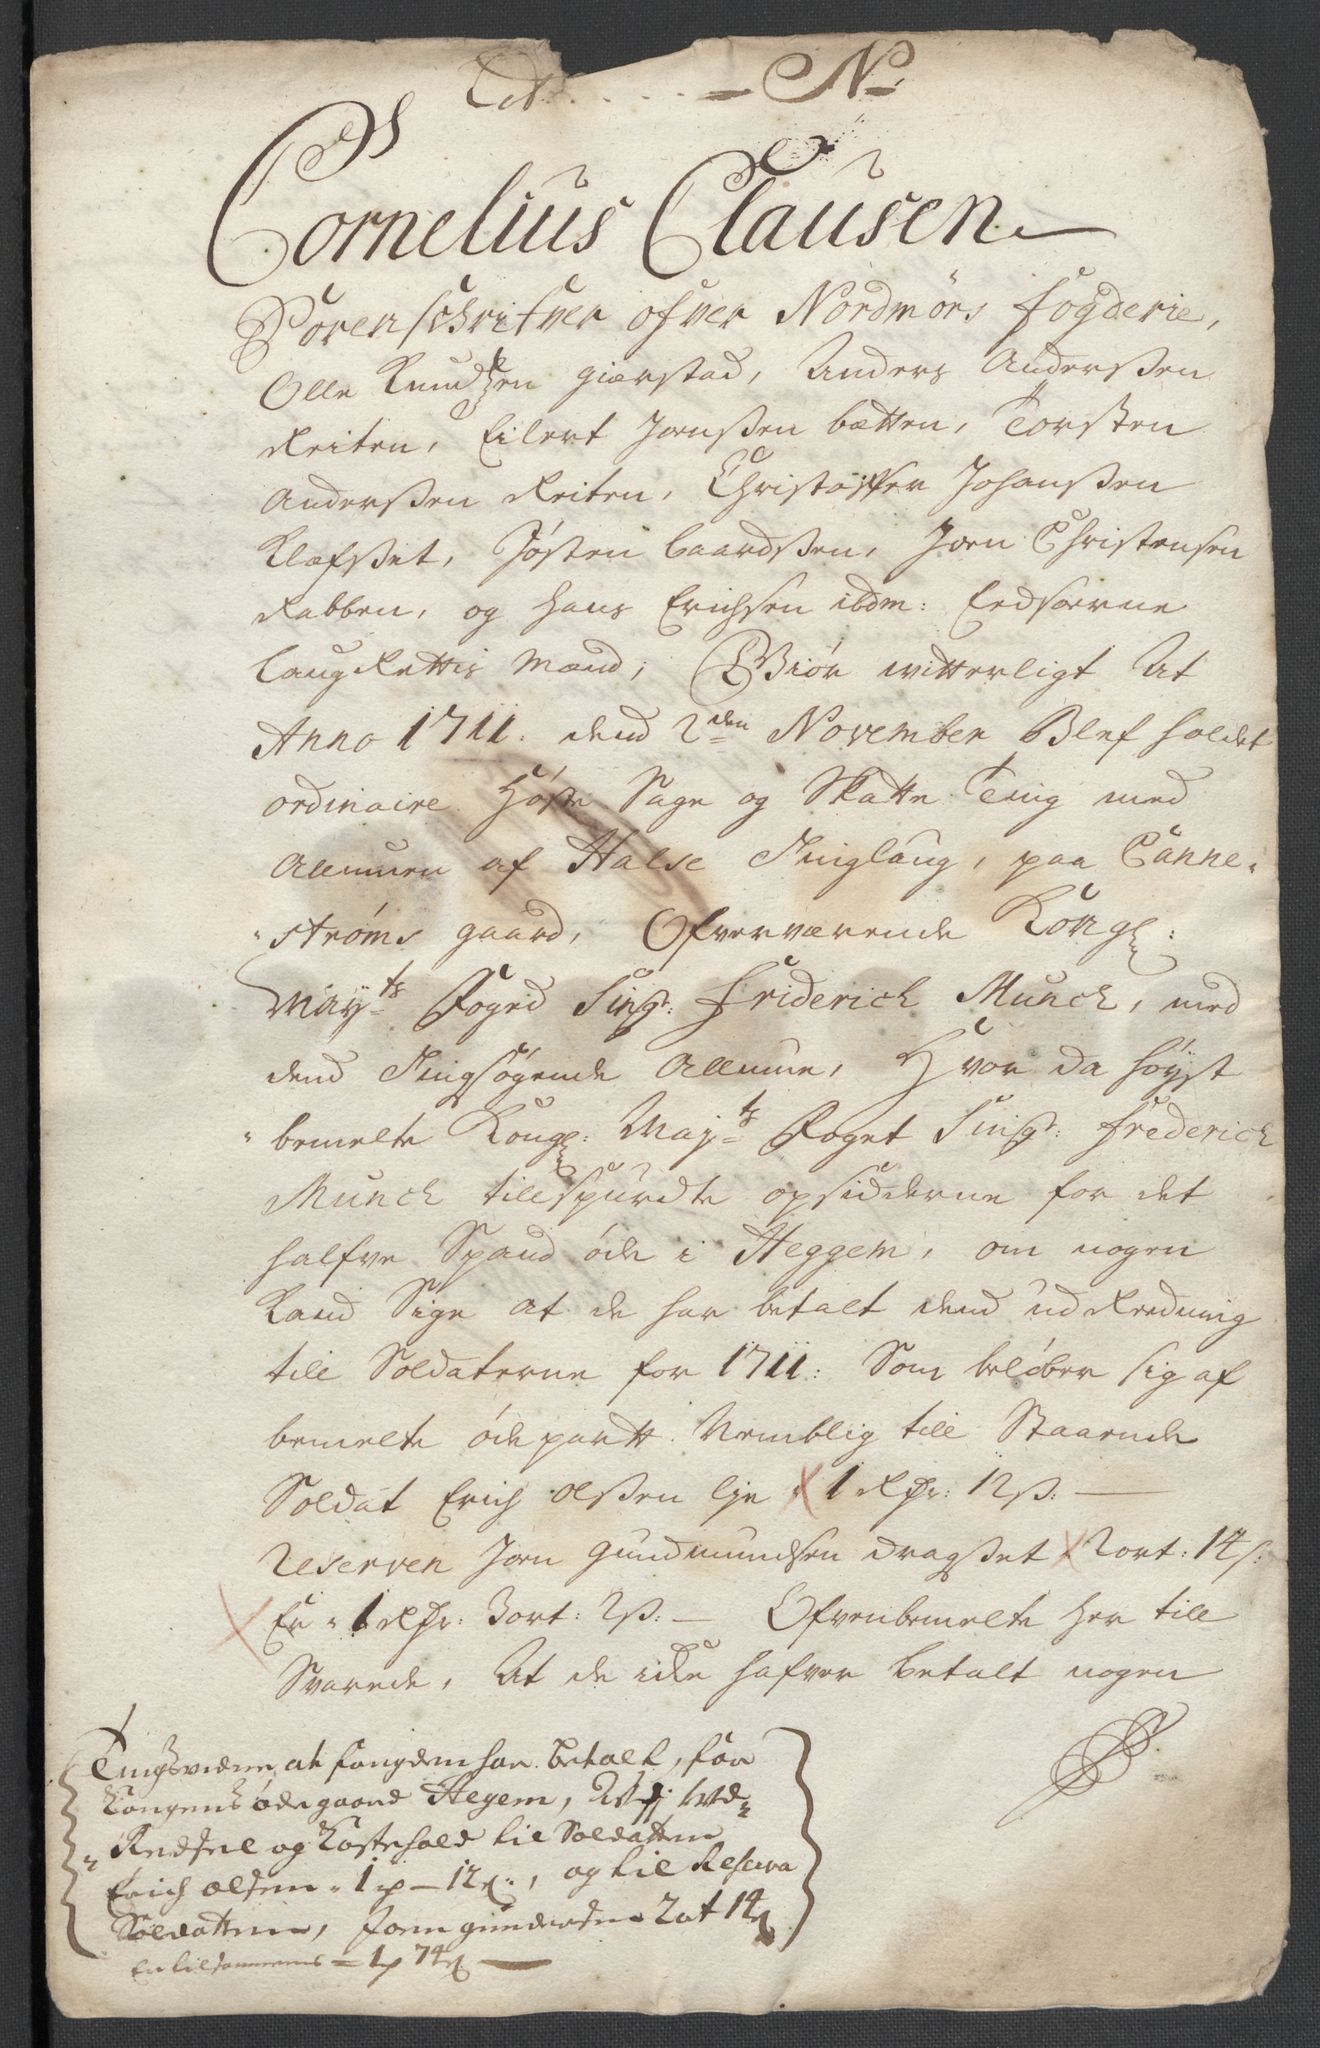 N
Cornelius Clausen
Sorenschrifver ofver Nordmørs fogderie,
Olle Knudsen giærstad, Anders Anderßen
Reiten, Eilert Jonßen bætten, Torsten
Anderßen Reiten, Christoffer Johanßen
Klefßet, Jøsten baardßen, Joen Christensen
Rabben, og Hans Erichsen ibdm: Eedsorne
laugRettis Mænd; Giør witterligt At
Anno 1711. dend 2den November Blef holdet
ordinaire Høste Sage og Skatte Ting med
Allmuen af Halse Tinglaug, paa Canne-
strøms gaard, Ofverværende Kongl:
Mayts Foged Sing: Friderich Munch, med
dend Tingsøgende Allmue, Hvor da høyst
bemelte Kongl: Mayts Foget Sing: Frederich
Munch tillspurdte opsidderne for det
halfve Spand øde i Heggem, om nogen
Kand Sige at de har betalt dend udReedning
till Soldaterne for 1711: Som beløber sig af
bemelte øde partt Nemblig till Staaende
Soldat Erich Olßen lye 1 Rdr: 12 ß: —
Reserven Joen Gundmundsen dragßet 2 ort: 14 ß:
Er 1 Rdr: 3 ort: 2 ß: — Ofvenbemelte her till
Svarede, At de icke hafver betalt nogen
Tingsvidne at fougden har betalt, for
Kongens øde gaard Hegem, ud-
Redsel og Kostehold til Soldatten
Erich olsen 1 — 12 ß:, og til Reserva
Soldatten, Joen gundersen 2 ort 14 ß
Er tilsammens = 1 74 ß —